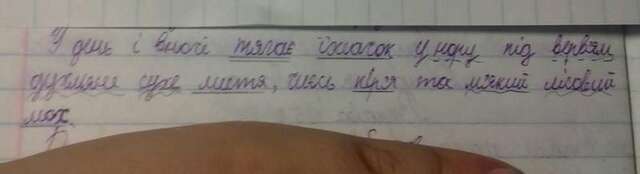 У день і вночі тягає їжачок у нору під верБям
духмяне сухе листя, чиєсь пір'я та м'який лісовий
мох.